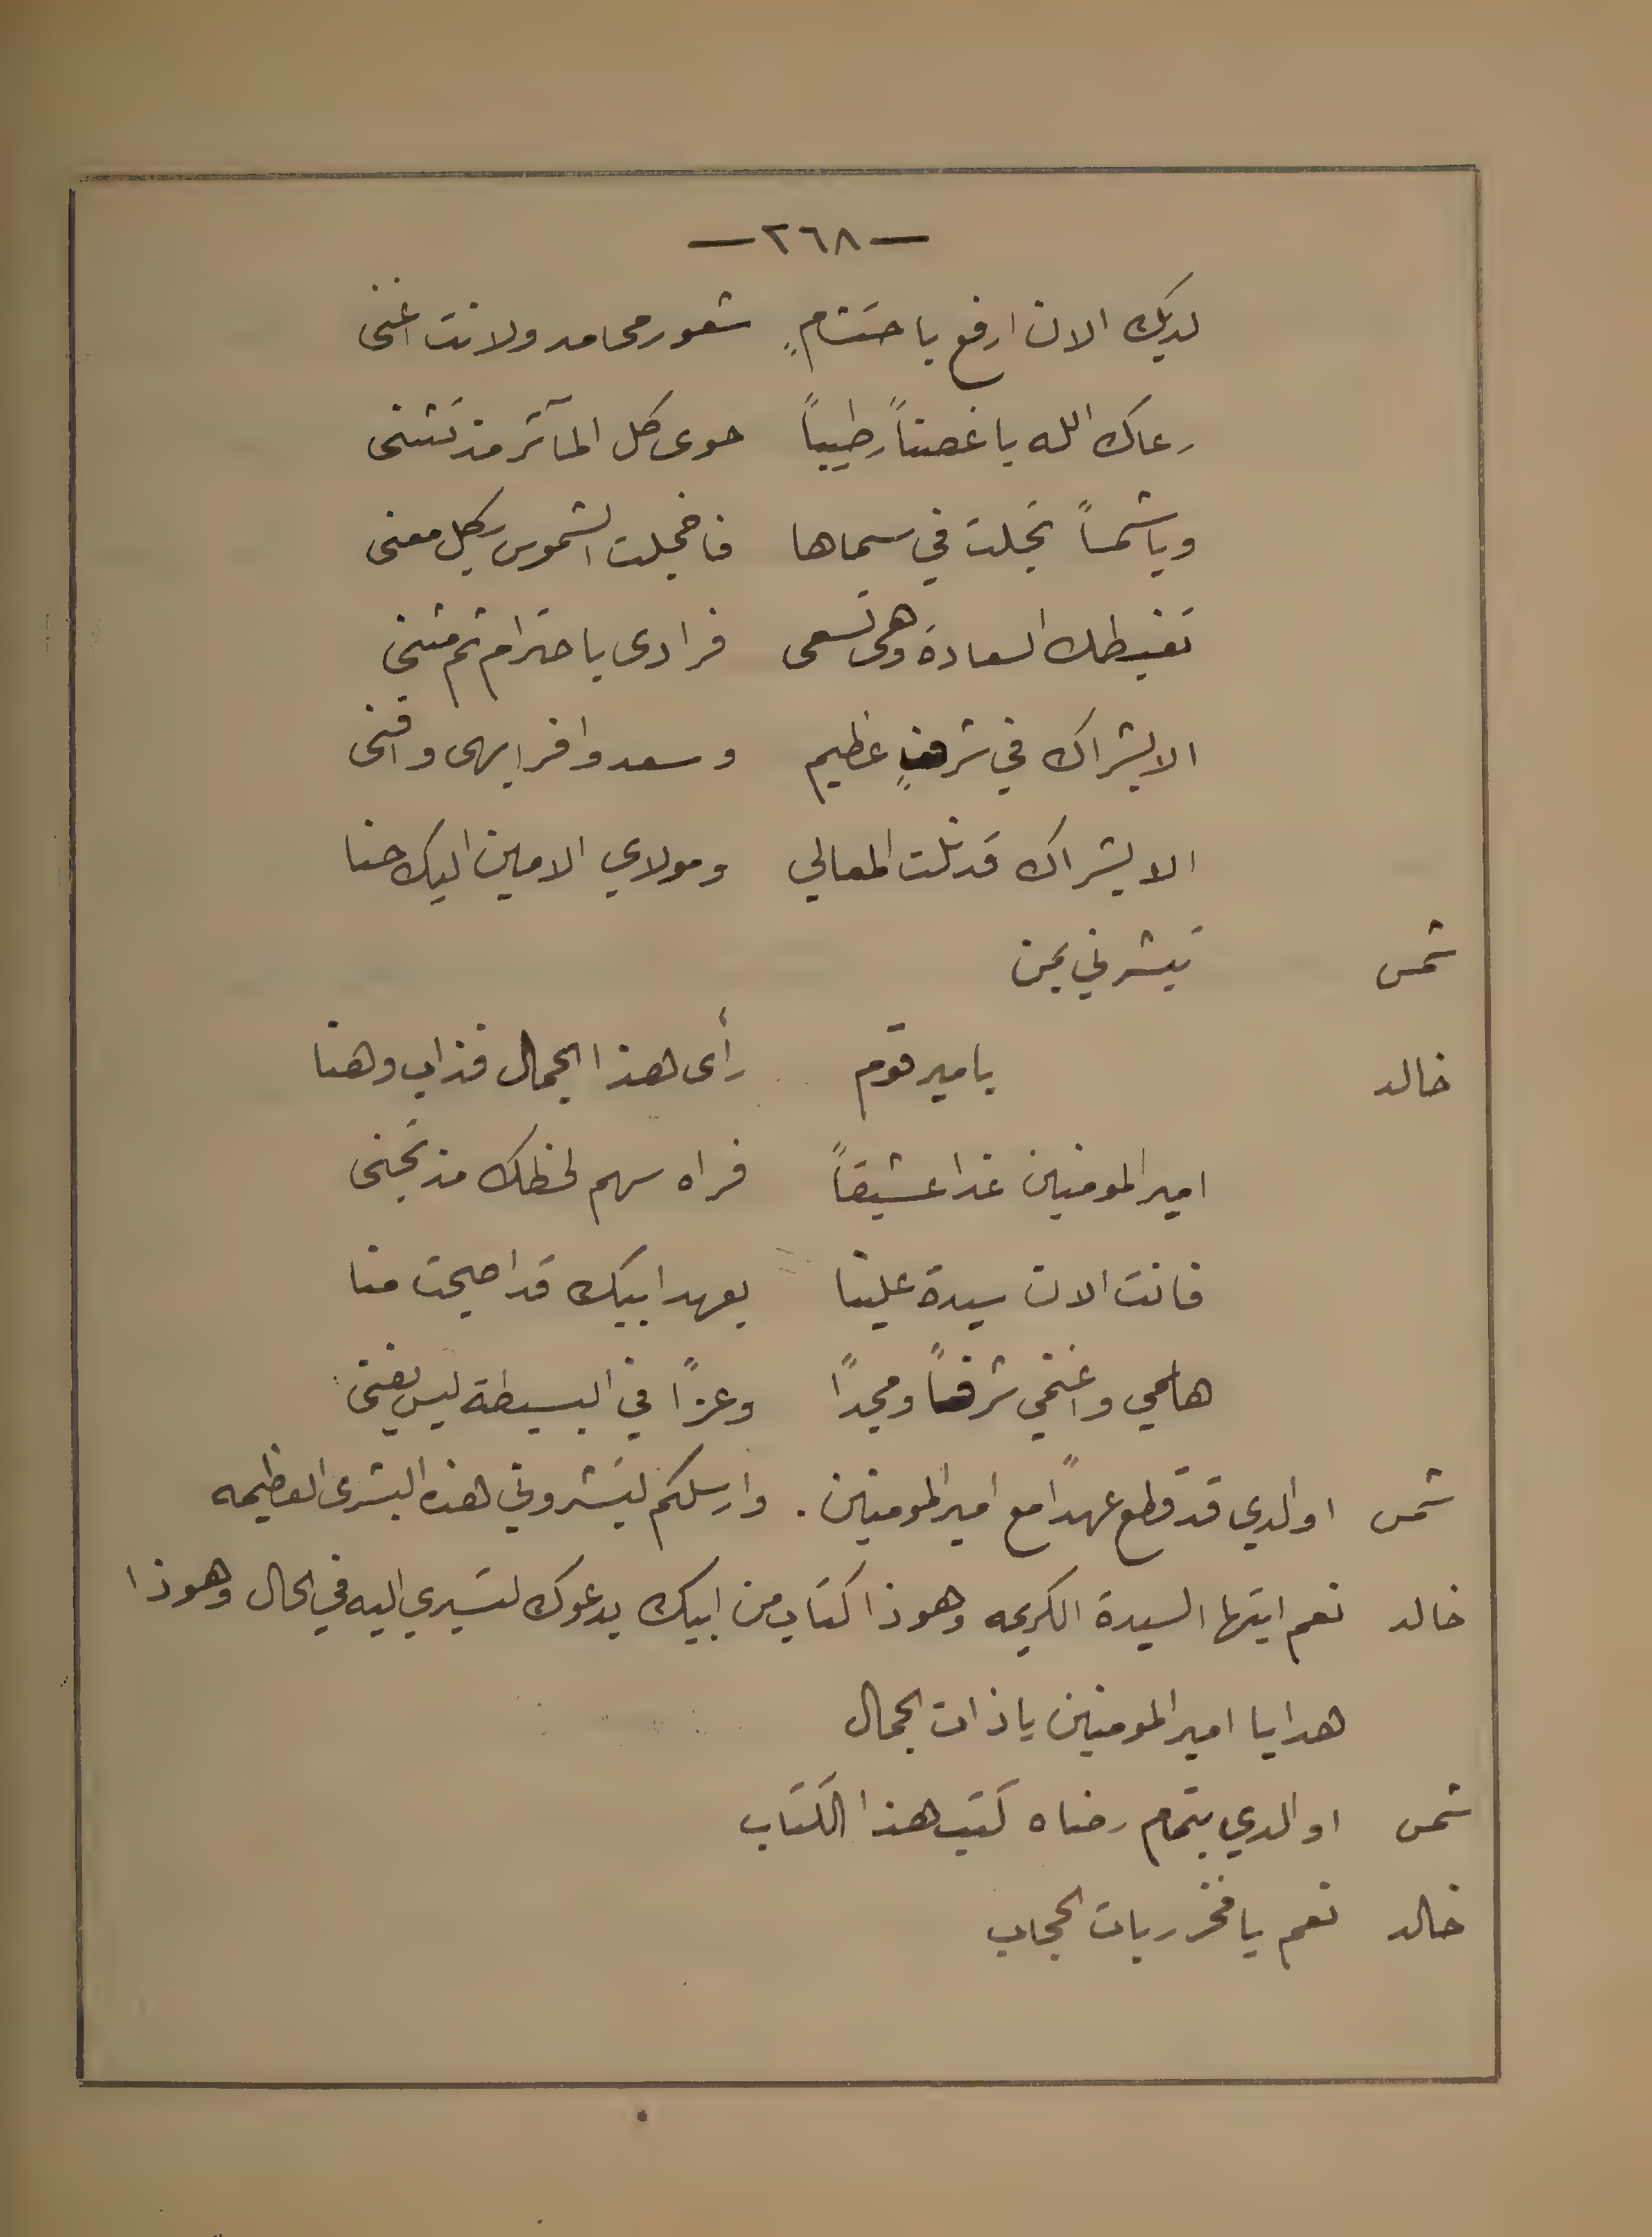 — ٢٦٨ —
لديك الان ارفع باحتشامٍ شعور محامد ولانت اغنى
رعاك الله يا غصناً رطيباً حوى كل المآثر مذ تثنى
ويا شمساً تجلت في سماها فاخجلت الشموس بكل معنى
تغبطك السعادة وهي تسعى فرادى باحترام ثم مثنى
الا بشراك في شرفٍ عظيم وسعد وافر ابهى واقنى
الا بشراك قد نلت المعالي ومولاي الامين اليك حنا
شمس تبشرني بمن
خالد بامير قوم رأى هذا الجمال فذاب وهنا
امير المومنين غدا عشيقاً فراه سهم لحظك مذ تجنى
فانت الان سيدة علينا بعهد ابيك قد اصبحت منا
هلمي واغنمي شرفاً ومجداً وعزاً في البسيطة ليس يفنى
شمس اوالدي قد قطع عهداً مع امير المومنين . وارسلكم لتبشروني هذه البشرى العظيمه
خالد نعم ايتها السيدة الكريمه وهوذا كتاب من ابيك يدعوك لتسيري اليه في الحال وهوذا
هدايا امير المومنين يا ذات الجمال
شمس اوالدي بتمام رضاه كتب هذا الكتاب
خالد نعم يا فخر ربات الحجاب